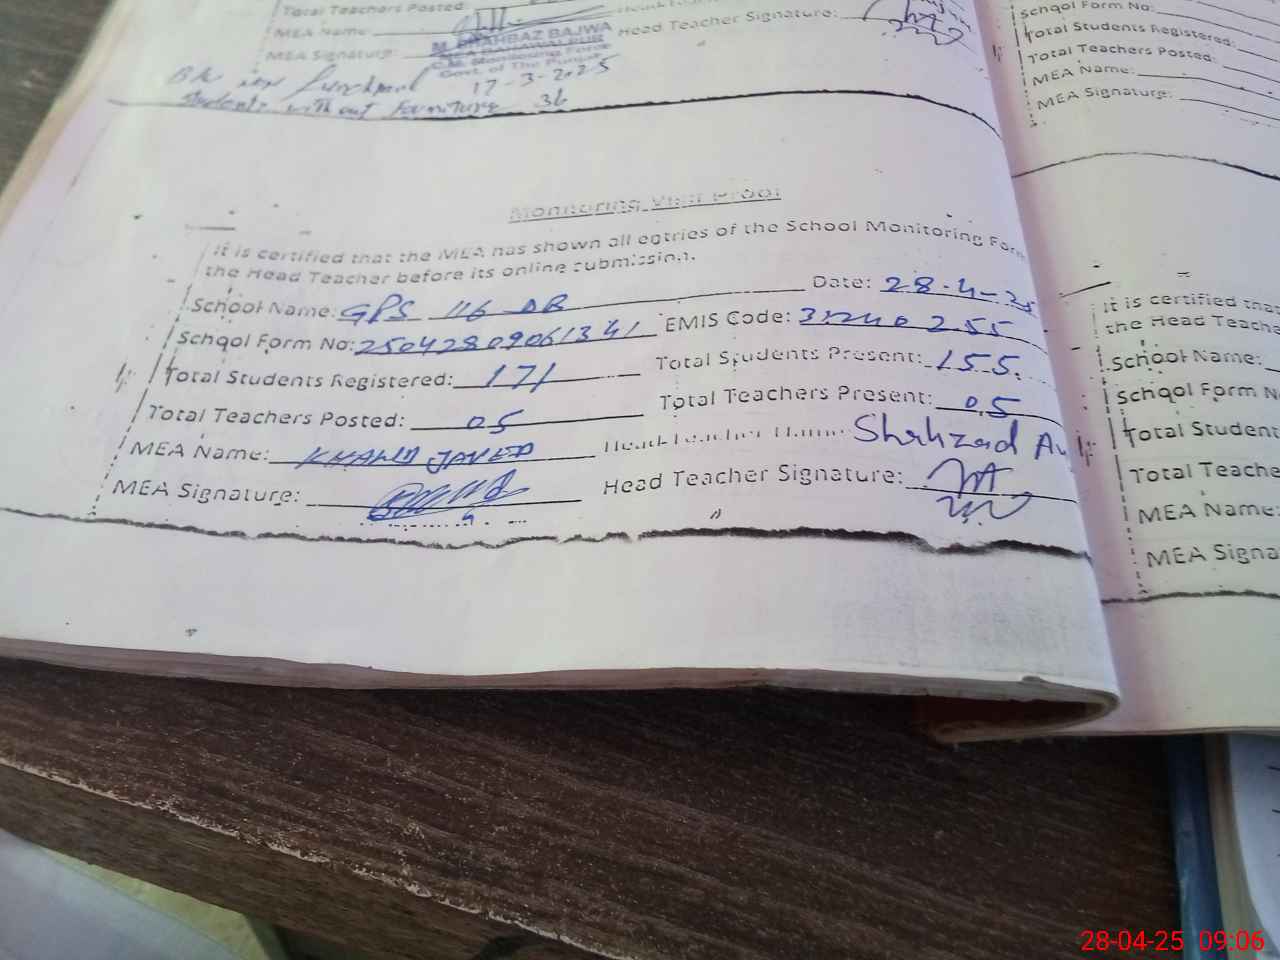 Total Teachers Posted:
MEA Name:
MEA Signature:
Head Teacher Signature:
M. SHAHBAZ BAJWA
MEA BAHAWALPUR
C.M. Monitoring Force
Govt. of The Punjab
17-3-2025
Students without furniture 36
Monitoring Visit Proof
It is certified that the MEA has shown all entries of the School Monitoring Form
the Head Teacher before its online submission.
School Name: GPS 116 DB Date: 28-4-25
School Form No: 25042809061341 EMIS Code: 31240255
Total Students Registered: 171 Total Students Present: 155.
Total Teachers Posted: 05 Total Teachers Present: 05
MEA Name: KHALID JAVED Head Teacher Name: Shahzad
MEA Signature: Head Teacher Signature:
School Form No:
Total Students Registered:
Total Teachers Posted:
MEA Name:
MEA Signature:
It is certified tha
the Head Teache
School Name:
School Form N
Total Student
Total Teache
MEA Name:
MEA Signa
28-04-25 09:06